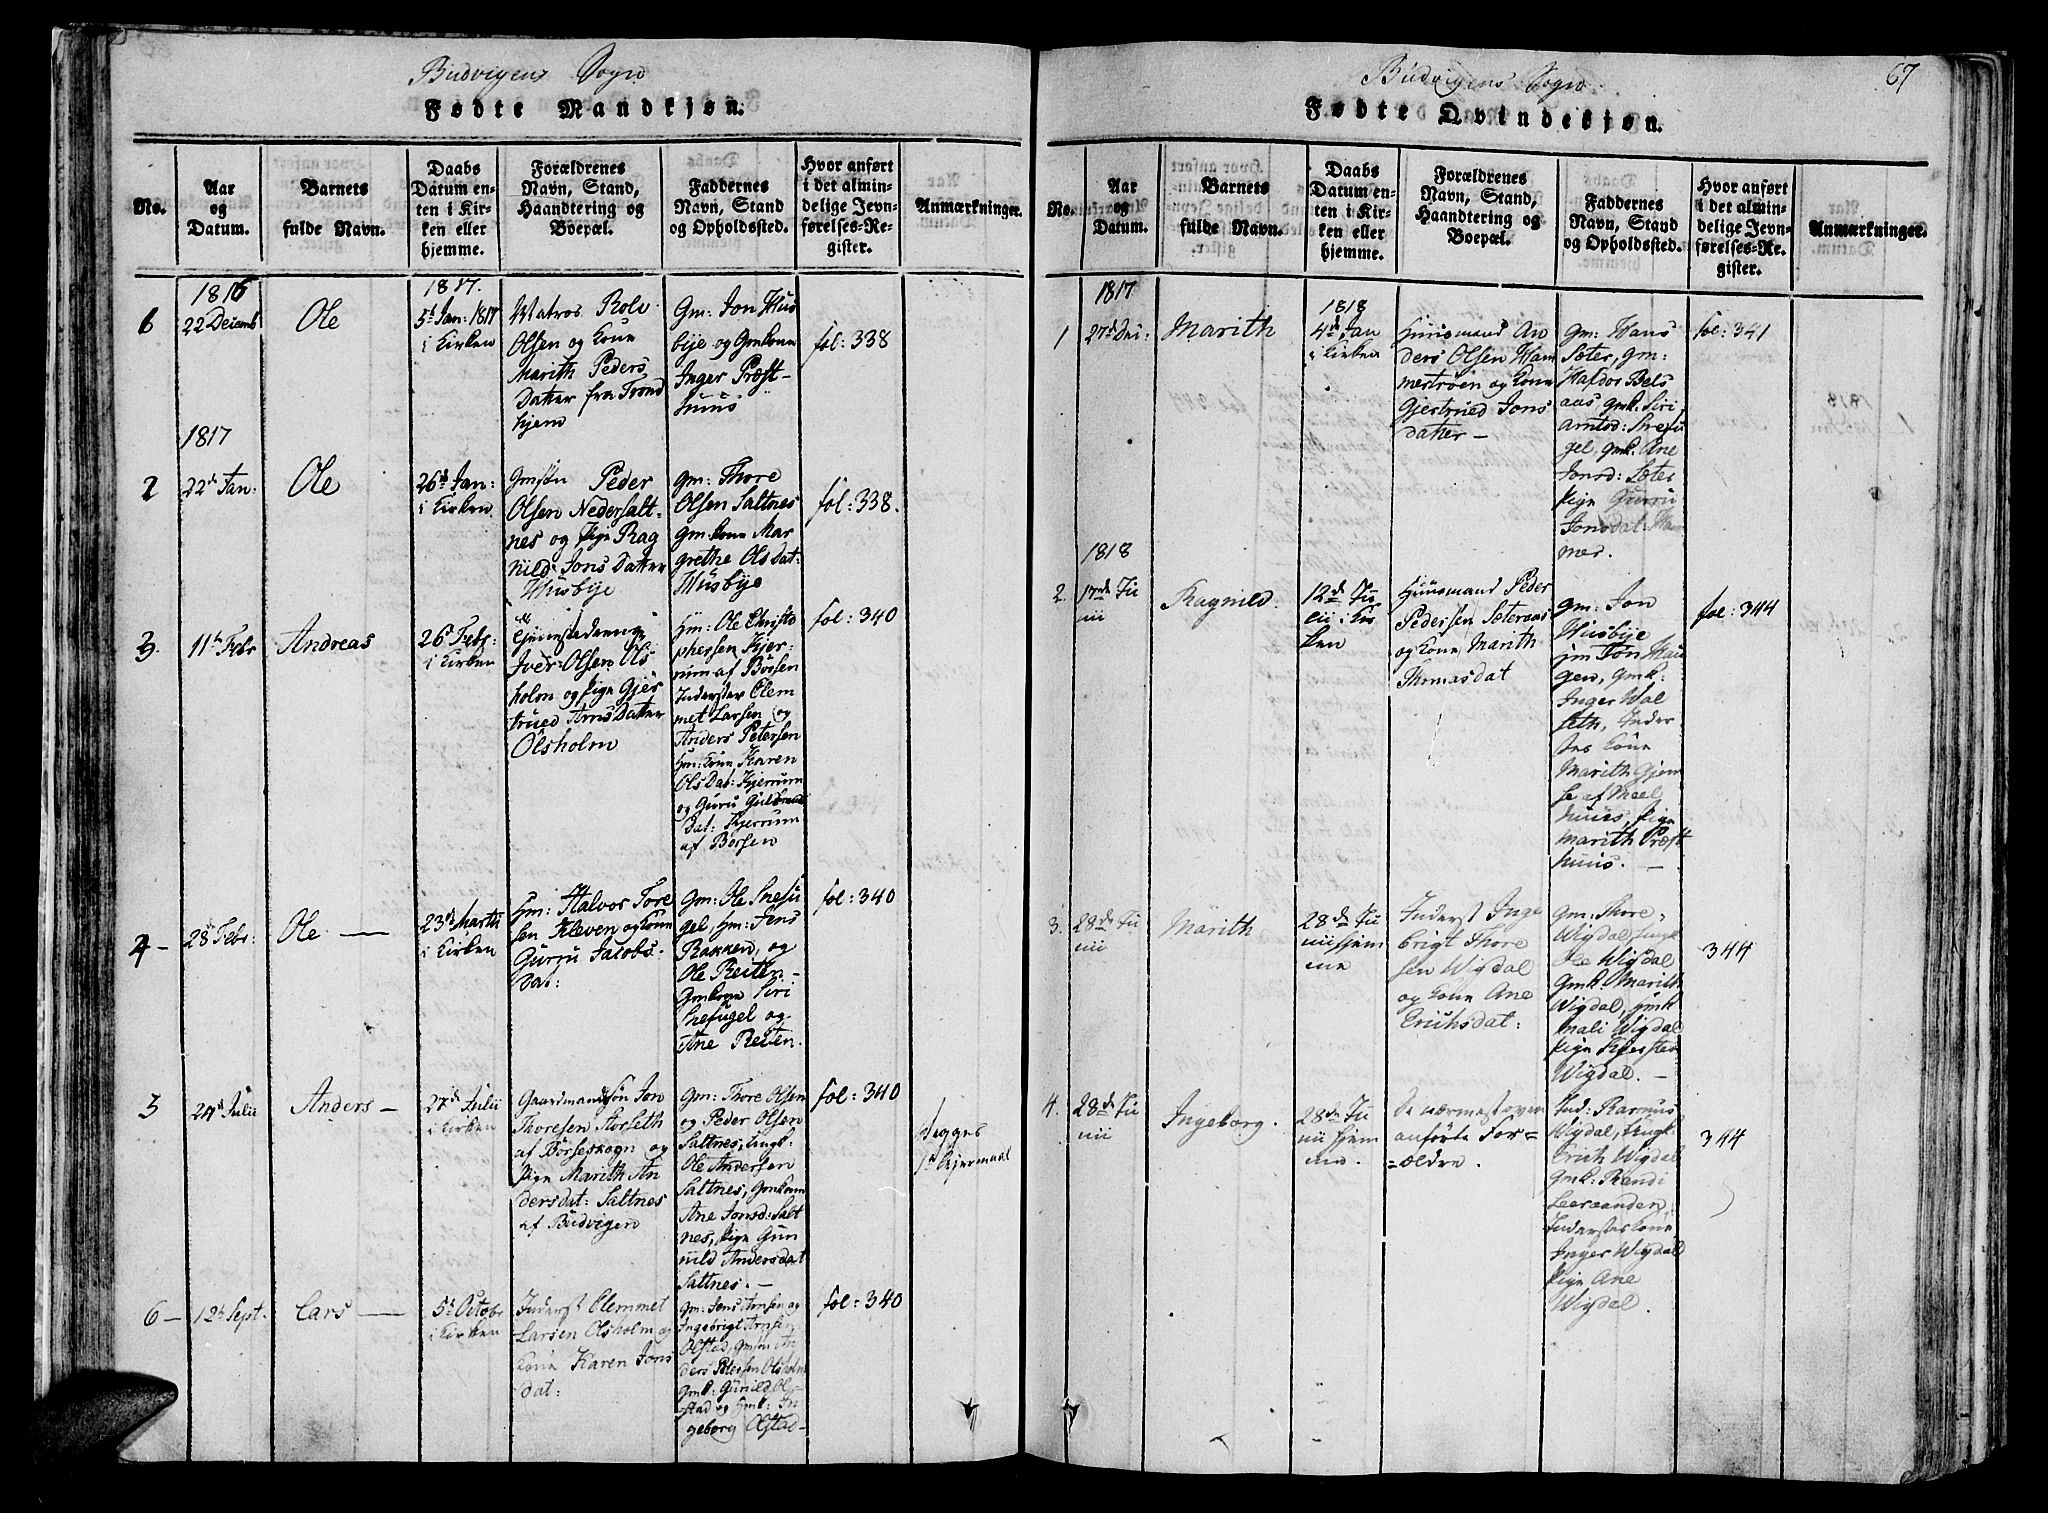 Budvigens Sogn
Fødte Mandkjøn.
No.
Aar
og
Datum.
Barnets
fulde Navn.
Daabs
Datum en-
ten i Kir-
ken eller
hjemme.
Forældrenes
Navn, Stand,
Haandtering og
Boepæl.
Faddernes
Navn, Stand
og Opholdssted.
Hvor anført
i det almin-
delige Jevn-
førelses-Re-
gister.
Anmærkninger.
1816
22 Decemb
Ole
1817.
5t Jan: 1817
i Kirken
Matros Role
Olsen og Kone
Marith Peders
Datter fra Trond
hjem
Gm: Jon Hus
bije og Gmkone
Inger Præst-
huus
fol: 338
1817
2
22d Jan:
Ole
26d Jan:
i Kirken
Gmsøn Peder
Olsen Nedersalt-
nes og Pige Rag
nild Jons Datter
Husbije
gm: Thore
Olsen Saltnes
gm: kone Mar
grethe Olsdat
Husbije
fol: 338.
3.
11th Febr
Andreas
26d Febr:
i Kirken
Iver Olsen Ols
holm og Pige Gjer
trued Arns Datter
Olsholm
Hm: Ole Christo
phersen Kjer-
rum af Børsen
Inderster Clem
met Larsen og
Anders Petersen
Hm: Kone Karen
Ols Dat: Kjerrum
og Guru Gulbrands
Dat: Kjerrum
af Børsen
fol: 340
4 -
28d Febr:
Ole
23d Martii
i Kirken
Hm: Halvor Tore
sen Kleven og Kone
Gurru Jacobs-
Dat:
Gm: Ole Snefu
gel, Hm: Jens
Bakken, og
Ole Reiten -
Gmkone Siri
Snefugel og
Ane Reiten.
fol: 340
24d Julii
Anders -
27d Julii
i Kirken
Gaardmandsøn Jon
Thoresen Storseth
af Børseskogn og
Pige Marith An
dersdat: Saltnes
af Budvigen
gm: Thore Olsen
og Peder Olsen
Saltnes, Ungk:
Ole Andersen
Saltnes, Gmkone
Ane Jonsd: Salt
nes, Pige Gun
nild Andersdat
Saltnes. -
fol: 340
Begges
1te Lejermaal
6 -
12th Sept.
Lars
5t Octobr
i Kirken
Inderst Clemmet
Larsen Olsholm og
Kone Karen Jons
dat:
gm: Jens Arnsen og
Ingebrigt Arnsen
Olstad, Gmsøn An
ders Petersen Olsholm
gmk: Gunild Ol-
stad og Hmk: In
geborg Olstad -
fol: 340
67
Budvigens Sogn
Fødte Qvindekjøn.
No.
Aar
og
Datum.
Barnets
fulde Navn.
Daabs
Datum en-
ten i Kir-
ken eller
hjemme.
Forældrenes
Navn, Stand,
Haandtering og
Boepæl.
Faddernes
Navn, Stand
og Opholdssted.
Hvor anført
i det almin-
delige Jevn-
førelses-Re-
gister.
Anmærkninger.
1817
1
27d Dec:
Marith
1818
4d Jan
i Kirken
Huusmand An
ders Olsen Ham
mestrøen og Kone
Gjertrued Jons
datter -
gm: Hans
Sæter, gm:
Halfdor Bels
aas, gmk. Siri
Arntsd: Snefu
gel, gmk. Ane
Jonsd: Sæter
Pige Gurru
Jonsdat: Ha
mer.
fol: 341
1818
2.
17de Ju
nii
Ragnild.
12d Ju
lii i Kir
ken
Huusmand Peder
Pedersen Sæteraas
og Kone Marith
Thomasdat
gm: Jon
Husbije
gm Jon Hau
gen, Gmk:
Inger Wal
seth, Inder-
stes Kone
Marith Gjem
se af Mæl
huus, Pige
Marith Præst
huus. -
fol: 344
3.
28de Ju
nii
Marith
28de Ju
nii hjem
me
Inderst Inge
brigt Thore
sen Wigdal
og Kone Ane
Erichsdat:
gm: Thore
Wigdal, Ungk
Ole Wigdal
gmk. Marith
Wigdal, Hmk
Mali Wigdal
Pige Kjersten
Wigdal. -
344
4.
28de Ju
nii
Ingeborg.
28de Ju
nii hjem
me.
De nærmest oven
anførte For=
=ældre.
Ind: Rasmus
Wigdal, Ungk:
Erich Wigdal
Gmk: Randi
Leeraanden,
Inderstes Kone
Inger Wigdal
Pige Ane
Wigdal.
344